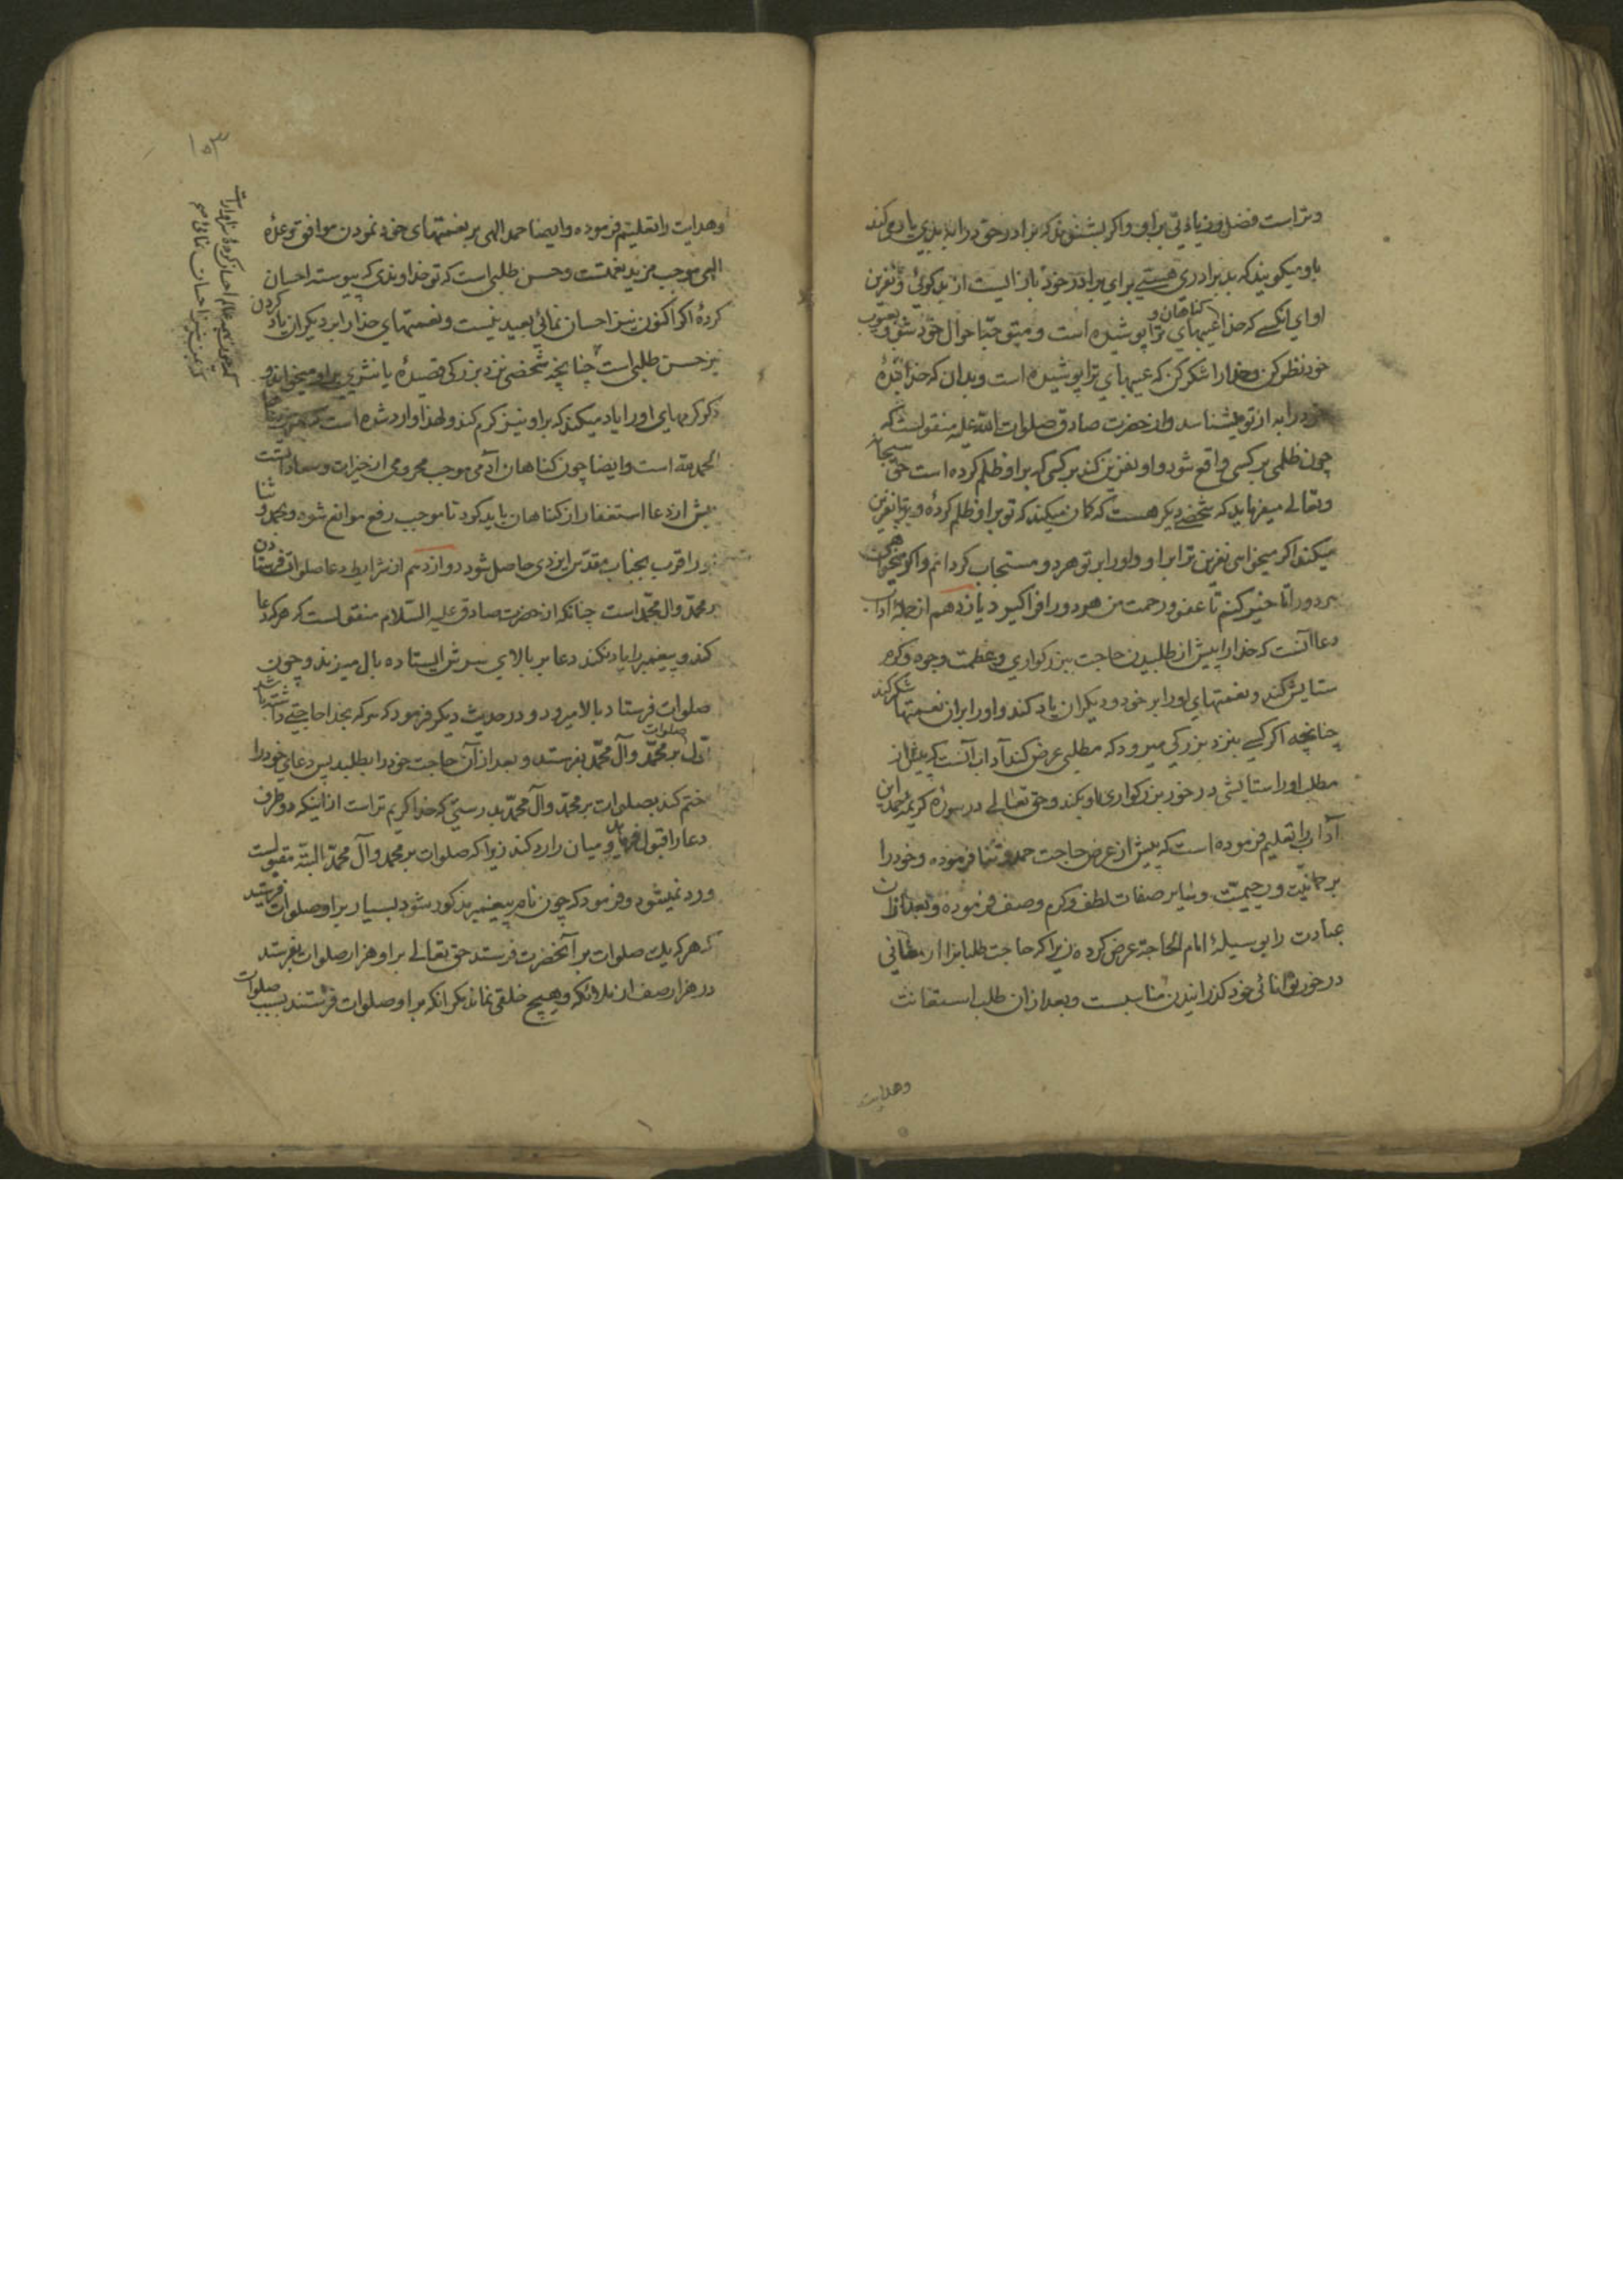 وتراست فضل وزیادتی بر او و اکر بشنوند که برادر خود را به بدی یاد میکند
باو میکویند که بد برادری هستی برای برادر خود باز ایست از بدکوئی و نفرین
او ای انکسی که خدا کناهان و عیبهای ترا پوشیده است و متوجه احوال خود شو و بعیوب
خود نظر کن و خدا را شکر کن که عیبهای ترا پوشیده است و بدان که خدا بنده
خود را به از تو میشناسد و از حضرت صادق صلوات الله علیه منقولست که
چون ظلمی بر کسی واقع شود و او نفرین کند بر کسی که بر او ظلم کرده است حق سبحانه
وتعالی میفرماید که شخصی دیکر هست که کمان میکند که تو بر او ظلم کرده و بر تو نفرین
میکند اکر میخواهی نفرین ترا بر او و او را بر تو هر دو مستجاب کردانم و اکر میخواهی
هر دو را تاخیر کنم تا عفو و رحمت من هر دو را فرا کیرد یازدهم از جمله آداب
دعا آنست که خدا را پیش از طلبیدن حاجت ببزرکواری و عظمت و جود و کرم
ستایش کند و نعمتهای او را بر خود و دیکران یاد کند و او را بر ان نعمتها شکر کند
چنانچه اکر کسی بنزد بزرکی میرود که مطلبی عرض کند آداب آنست که پیش از
مطلب او را ستایشی در خور بزرکواری او بکند و حق تعالی در سوره کریمه حمد این
آداب را تعلیم فرموده است که پیش از عرض حاجت حمد و ثنا فرموده و خود را
برحمانیت و رحیمیت و سایر صفات لطف و کرم وصف فرموده و بعد از ان
عبادت را بوسیله امام الحاجة عرض کرده زیرا که حاجت طلب را ارمغانی
در خور توانائی خود کذرانیدن مناسبست و بعد از ان طلب استعانت
وهدایت
۱۵۳
وهدایت را تعلیم فرموده و ایضا حمد الهی بر نعمتهای خود نمودن موافق وعده
الهی موجب مزید نعمتست و حسن طلبی است که تو خداوندی که پیوسته احسان
کرده اکر اکنون نیز احسان نمائی بعید نیست و نعمتهای خدا را بر دیکران یاد کردن
نیز حسن طلبی است چنانچه شخصی نزد بزرکی قصیده یا نثری بر او میخواند و
ذکر کرمهای او را یاد میکند که بر او نیز کرم کند و لهذا وارد شده است که
الحمد لله است و ایضا چون کناهان آدمی موجب محرومی از خیرات و سعاداتست
پیش از دعا استغفار از کناهان باید کرد تا موجب رفع موانع شود و بحمد و ثنا
او را قرب بجناب مقدس ایزدی حاصل شود دوازدهم از شرایط دعا صلوات فرستادن
بر محمد و ال محمد است چنانکه از حضرت صادق علیه السلام منقولست که هر که دعا
کند و پیغمبر را یاد نکند دعا بر بالای سرش ایستاده بال میزند و چون
صلوات فرستاد بالا میرود و در حدیث دیکر فرمود که هر که بخدا حاجتی داشته باشد
اول صلوات بر محمد و آل محمد بفرستد و بعد از آن حاجت خود را بطلبد پس دعای خود را
ختم کند بصلوات بر محمد و آل محمد بدرستی که خدا کریم تر است از اینکه دو طرف
دعا را قبول فرماید و میان را رد کند زیرا که صلوات بر محمد و آل محمد البته مقبولست
و رد نمیشود و فرمود که چون نام پیغمبر مذکور شود بسیار بر او صلوات فرستید
که هر که یک صلوات بر آنحضرت فرستد حق تعالی بر او هزار صلوات بفرستد
در هزار صف از ملائکه و هیچ خلقی نماند مکر انکه بر او صلوات فرستند بسبب صلوات